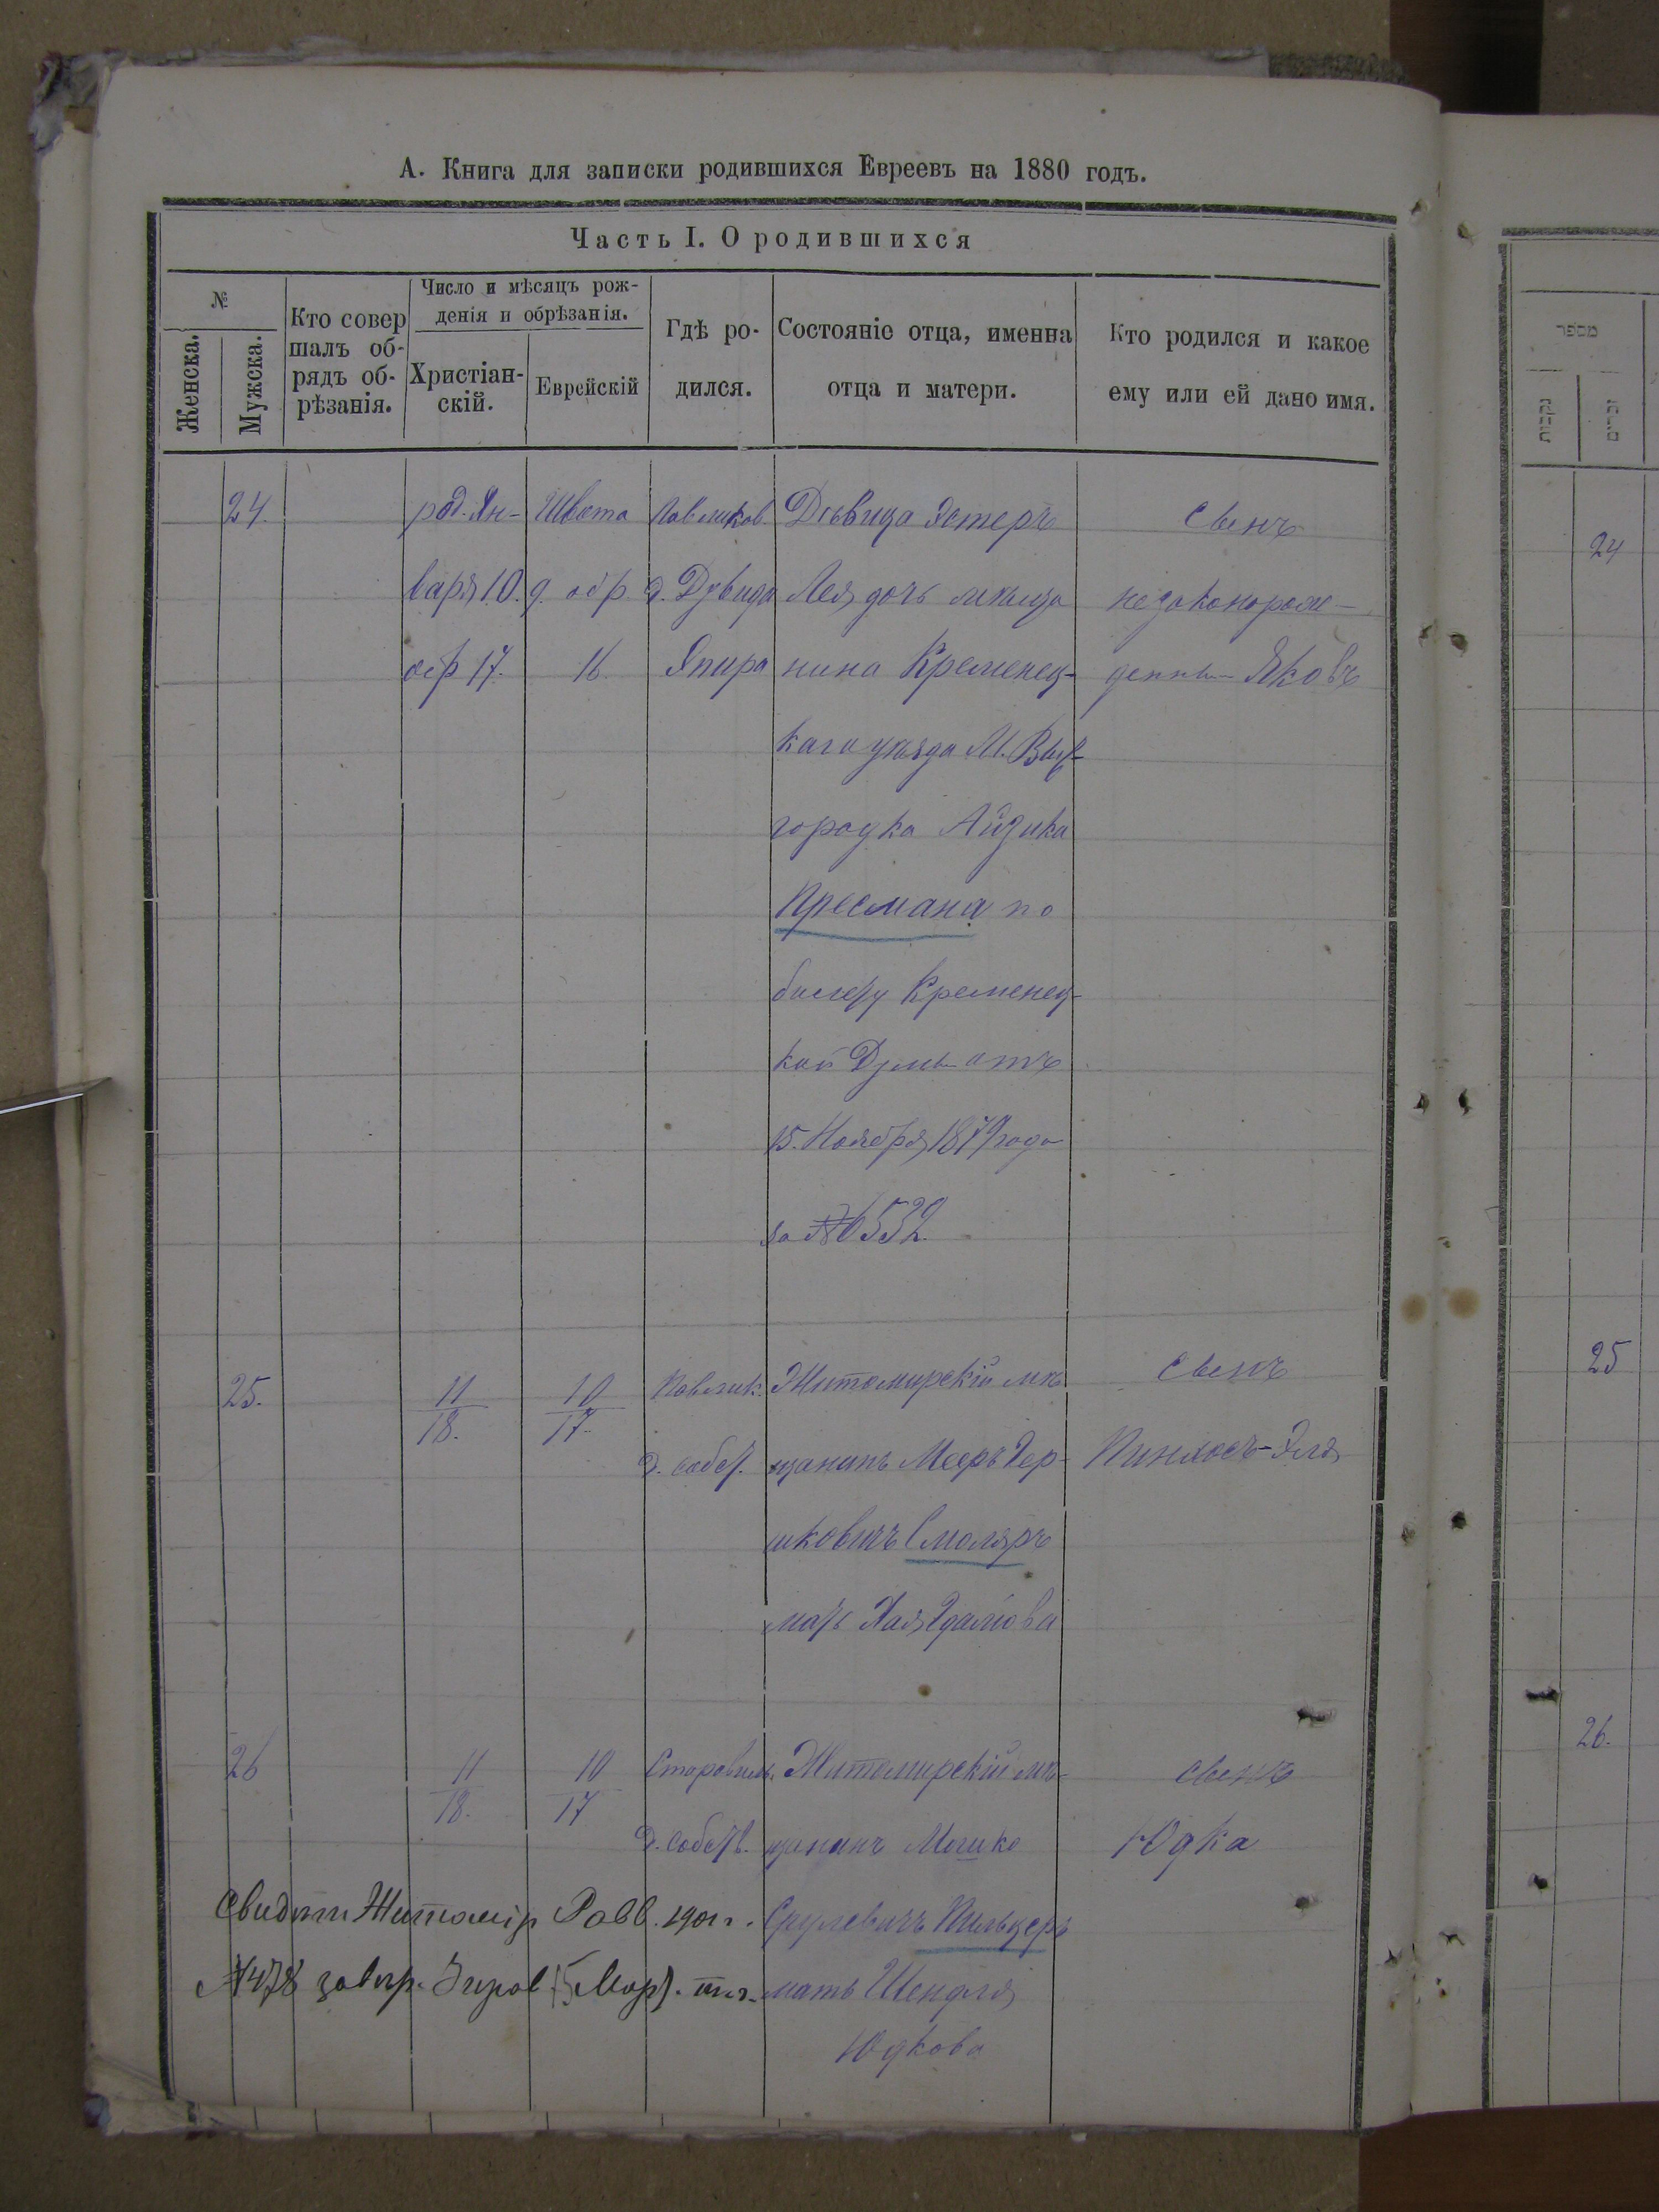 А. Книга для записки родившихся Евреевъ на 1880 годъ.
Часть I. О родившихся
№
Женска.
Мужска.
Кто совер
шалъ об-
рядъ об-
рѣзанія.
Число и мѣсяцъ рож-
денія и обрѣзанія.
Христіан-
скій.
Еврейскій
Гдѣ ро-
дился.
Состояніе отца, именна
отца и матери.
Кто родился и какое
ему или ей дано имя.
24.
род. Ян-
варя 10.
обр 17.
Швата
9. обр
16.
Павликов.
д. Дувида
Дѣвица Эстеръ
Лея дочь мѣща
нина Кременец-
каго уѣзда М. Выш-
городка Айзика
Пресмана по
билету Кременец-
кой Думы отъ
15. Ноября 1879 года
за № 6532.
Сынъ
незаконорож-
денны Яковъ
25.
11
18.
10
17.
Павлик.
д. собст.
Житомирскій мѣ
щанинъ Мееръ Гер-
шковичъ Смоляръ
мать Хая
Сынъ
Пинхосъ-Эля
26
11
18.
10
17
д. собств.
Житомирскій мѣ-
щанинъ Мошко
Срулевичъ Пильцеръ
мать Шендля
Юдкова
Сынъ
Юдка
Житомір Равв. 1901 г.
№ 478
מספר
נקבות
זכרים
24
25
26.